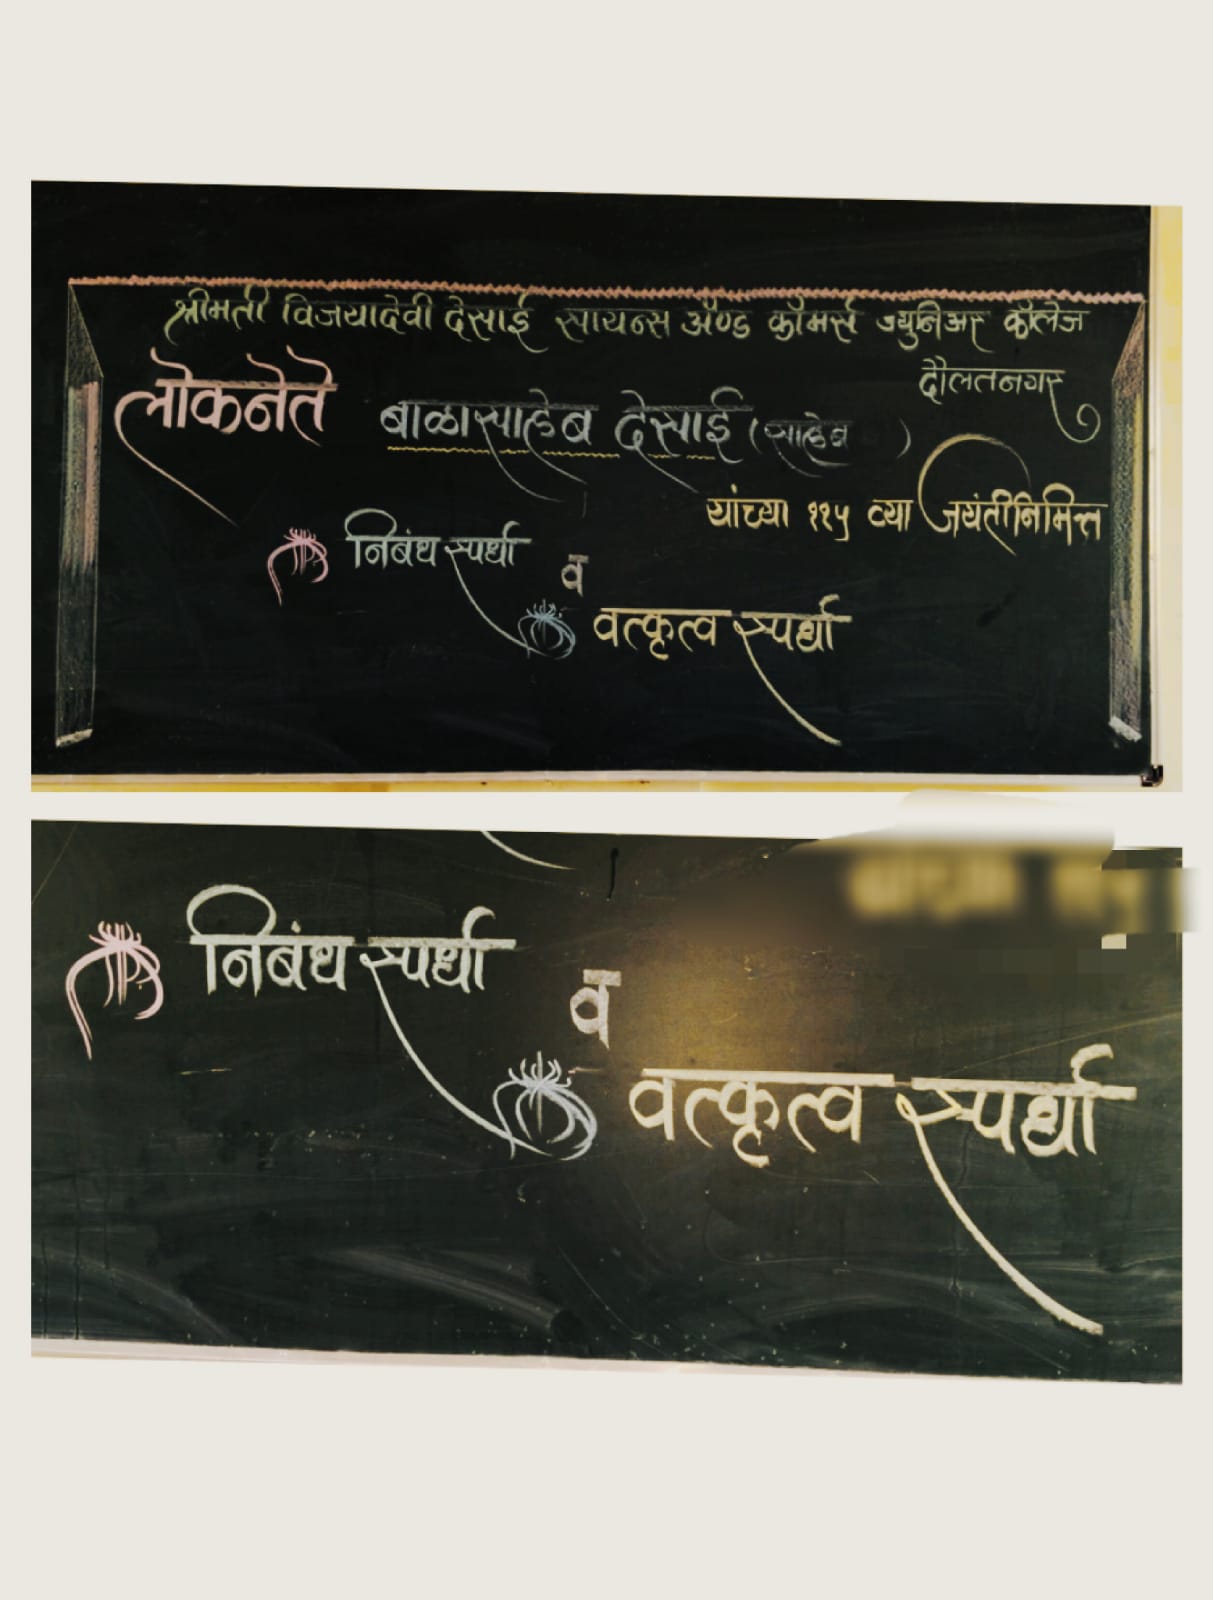 श्रीमती विजयादेवी देसाई सायन्स अँण्ड कॉमर्स ज्युनिअर कॉलेज
दौलतनगर
लोकनेते बाळासाहेब देसाई (साहेब)
यांच्या ११५ व्या जयंतीनिमित्त
निबंध स्पर्धा
व
वत्कृत्व स्पर्धा
निबंध स्पर्धा
व
वत्कृत्व स्पर्धा